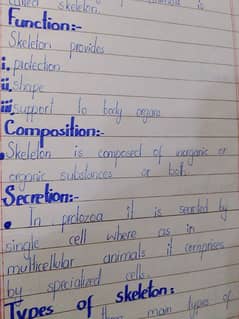 called skeleton.
Function:-
Skeleton provides
i. protection
ii. shape
iii. support to body organs
Composition:-
• Skeleton is composed of inorganic or
organic substances or both.
Secretion:-
• In protozoa it is secreted by
single cell where as in
multicellular animals it comprises
by specialized cells.
Types of skeleton:
main types of